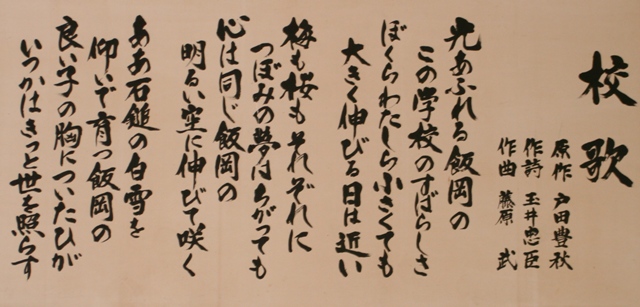 校歌
原作 戸田豊秋
作詩 玉井忠臣
作曲 藤原 武
光あふれる飯岡の
この学校のすばらしさ
ぼくらわたしら小さくても
大きく伸びる日は近い
梅も桜も それぞれに
つぼみの夢はちがっても
心は同じ飯岡の
明るい空に伸びて咲く
ああ石鎚の白雪を
仰いで育つ飯岡の
良い子の胸についたひが
いつかはきっと世を照らす